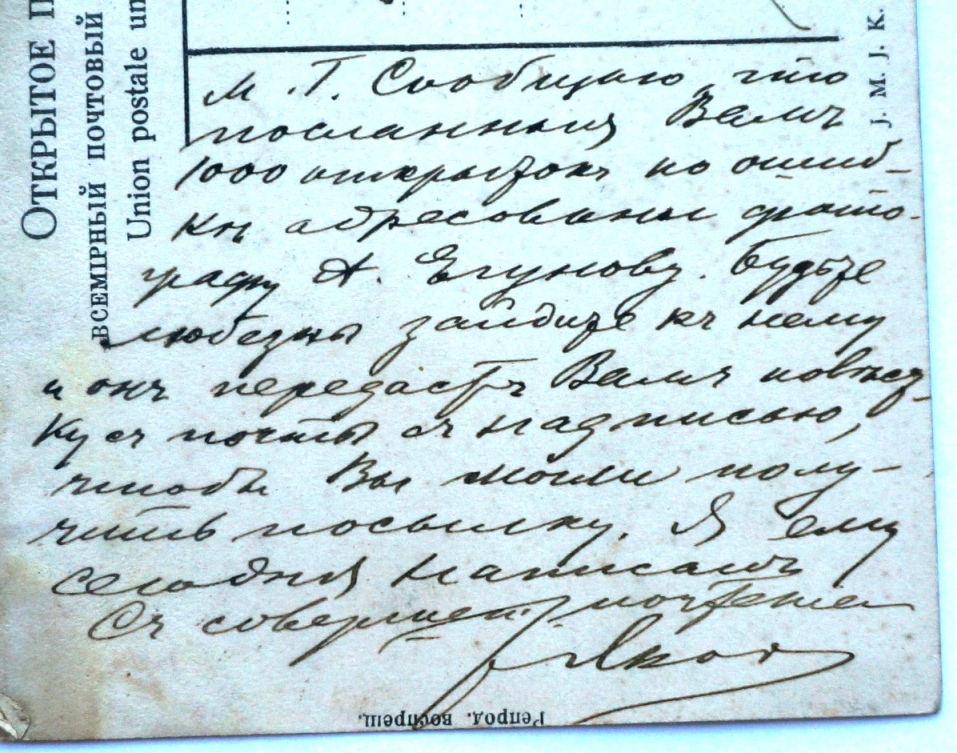 ОТКРЫТОЕ П
ВСЕМІРНЫЙ ПОЧТОВЫЙ
Union postale un
J. M. J. K.
М. Г. Сообщаю, что
посланныя Вамъ
1000 открытокъ по ошиб-
кѣ адресованы фото-
графу А. Егунову. Будьте
любезны зайдите къ нему
и онъ передастъ Вамъ повѣст-
ку съ почты съ надписью,
чтобы Вы могли полу-
чить посылку. Я ему
сегодня написалъ
Съ совершен. почтение
Репрод. воспрещ.